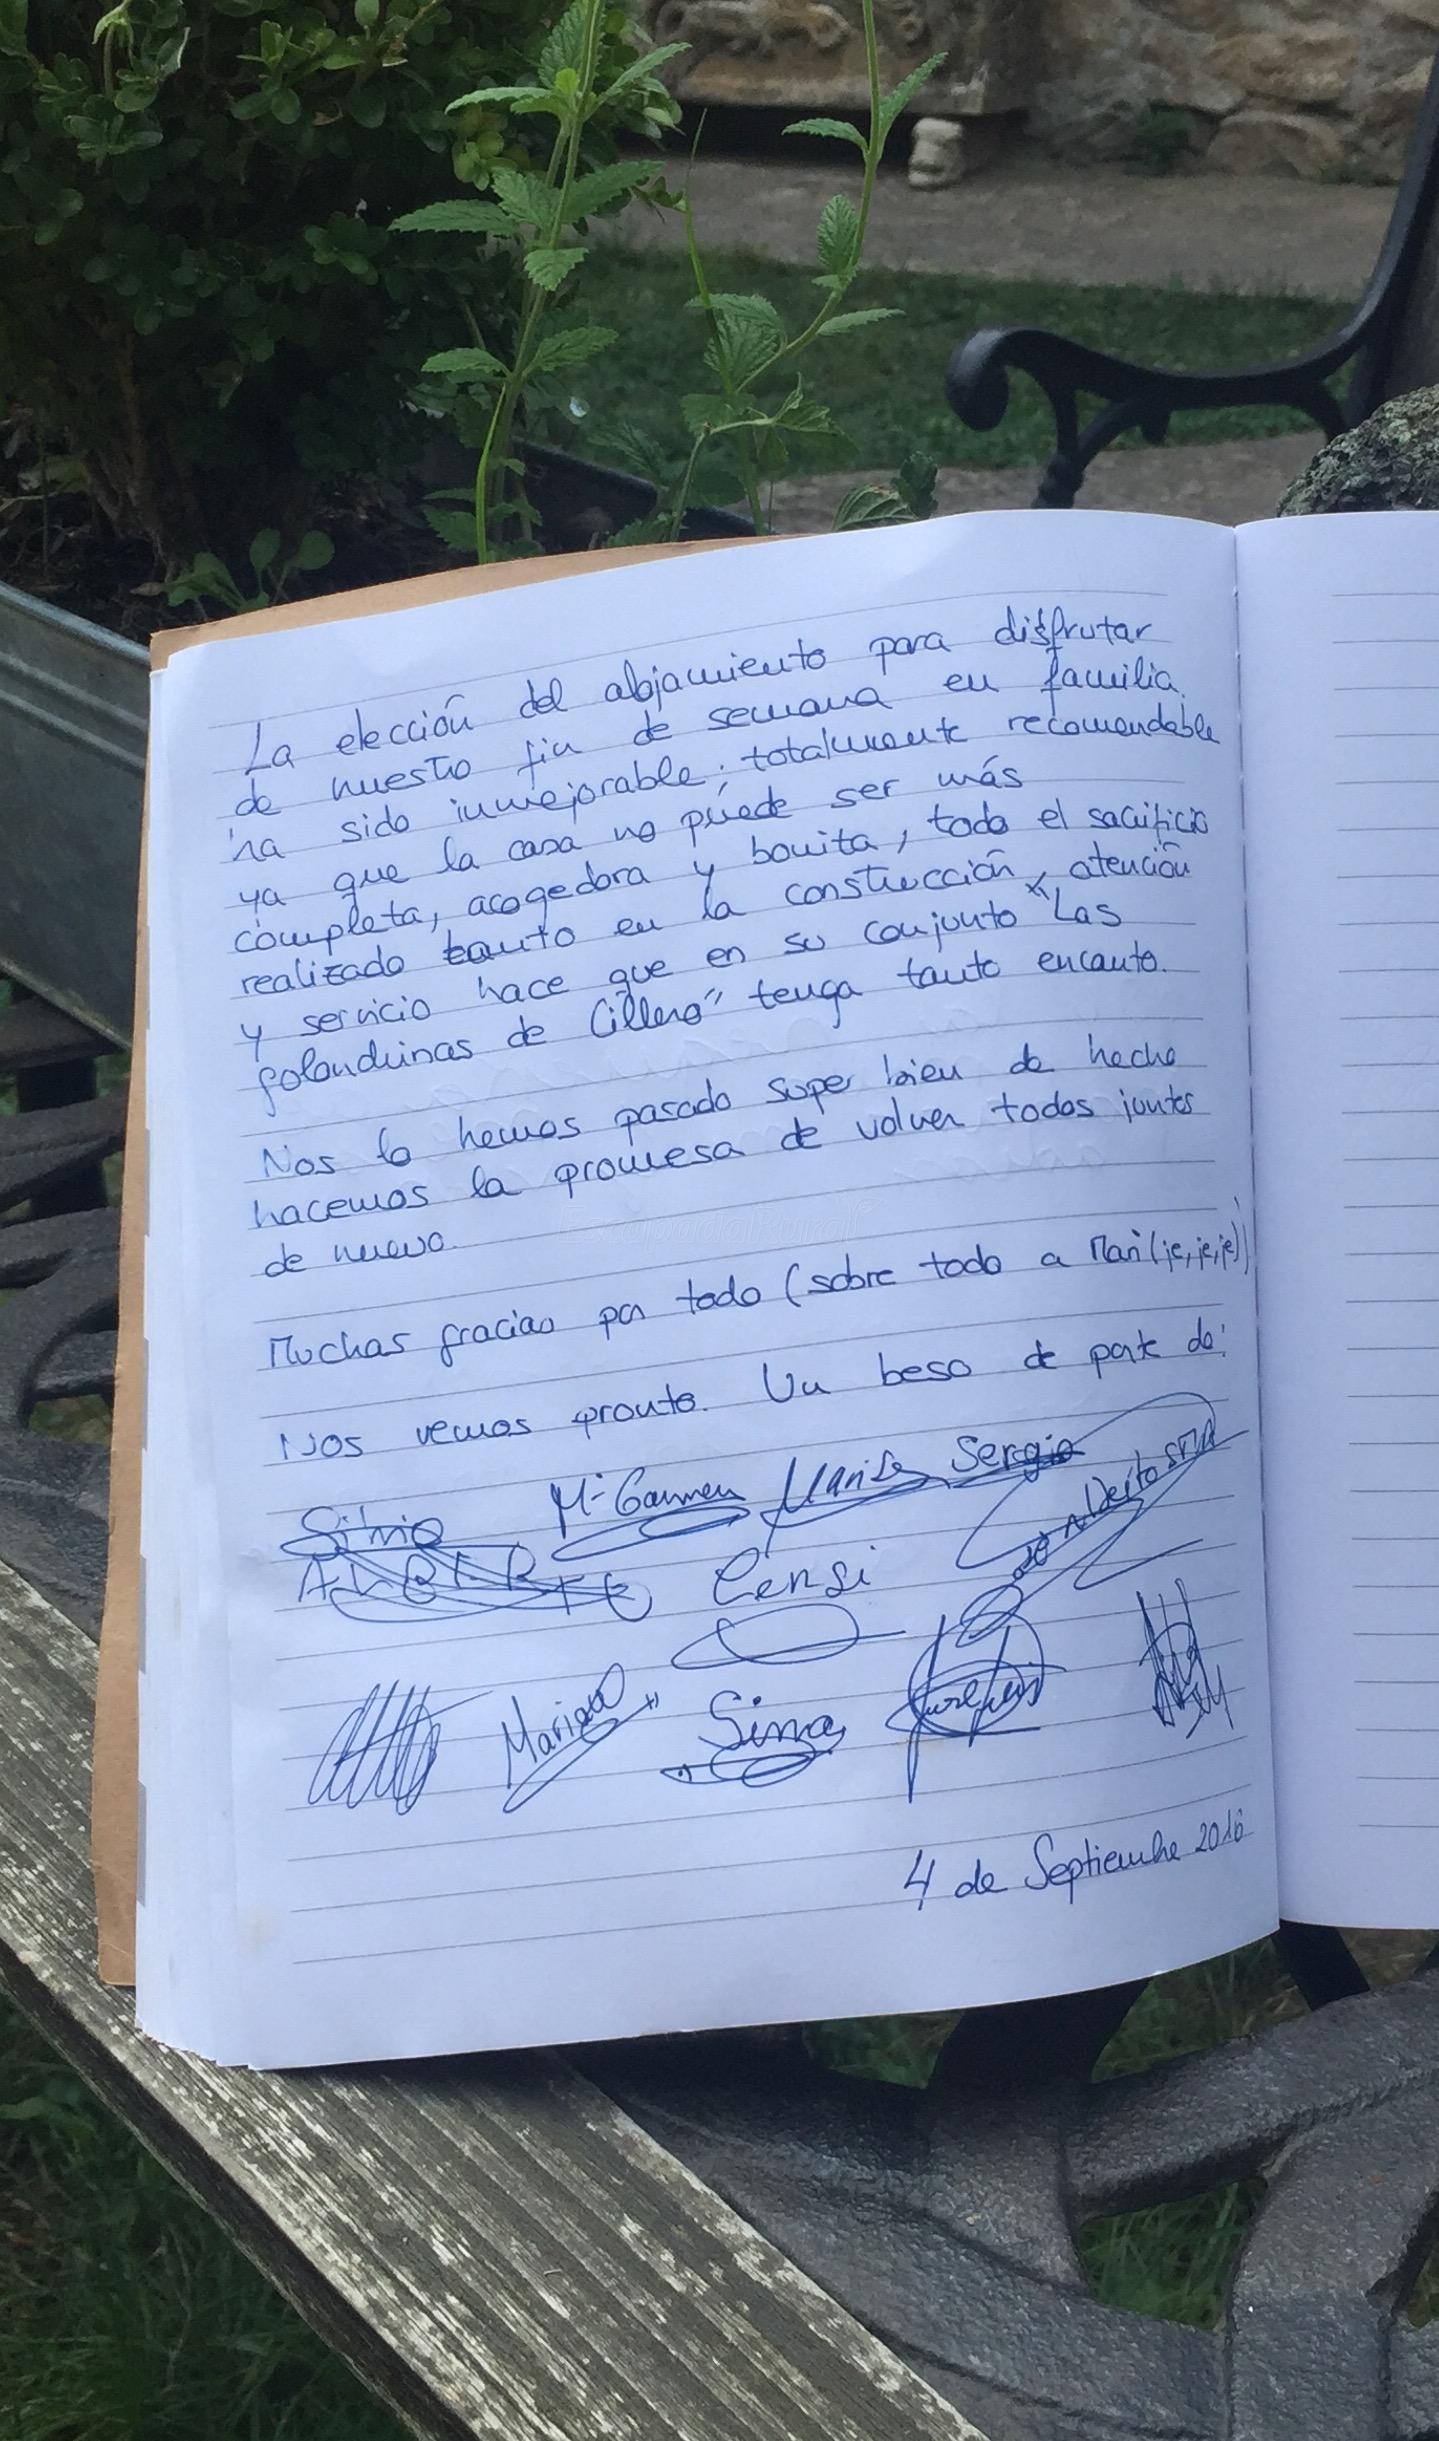 La elección del alojamiento para disfrutar
de nuestro fin de semana en familia.
ha sido inmejorable; totalmente recomendable
ya que la casa no puede ser más
completa, acogedora y bonita, todo el sacrificio
realizado tanto en la construcción, atención
y servicio hace que en su conjunto "Las
golondrinas de Cillero" tenga tanto encanto.
Nos lo hemos pasado super bien de hecho
hacemos la promesa de volver todos juntos
de nuevo.
EscapadaRural
Muchas gracias por todo (sobre todo a Mari (je, je, je))
Nos vemos pronto. Un beso de parte de:
Silvia Mª Carmen Marisa Sergio
ALBERTO Censi
Mariano Sima Jose Luis
4 de Septiembre 2016